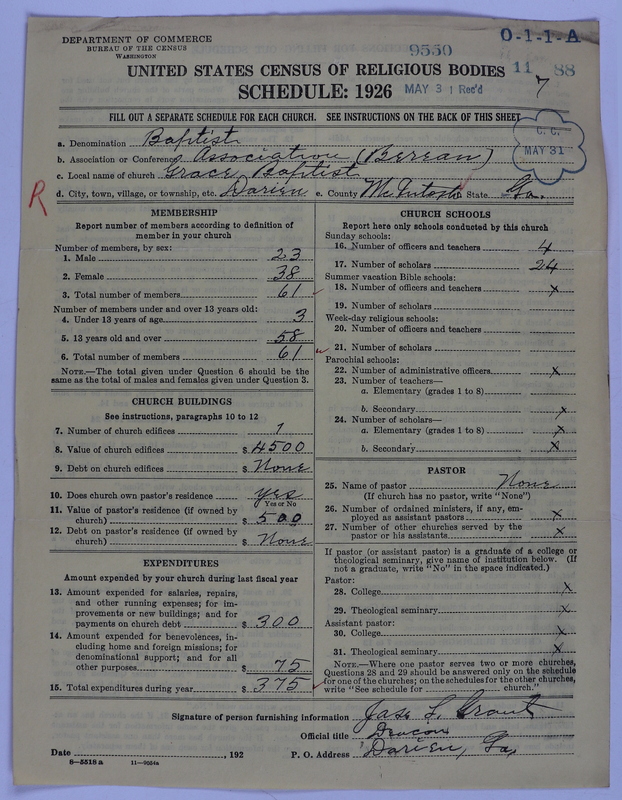 DEPARTMENT OF COMMERCE
BUREAU OF THE CENSUS
WASHINGTON
O-1-1-A
9550
11 88
7
UNITED STATES CENSUS OF RELIGIOUS BODIES
SCHEDULE: 1926
MAY 31 Rec'd
FILL OUT A SEPARATE SCHEDULE FOR EACH CHURCH. SEE INSTRUCTIONS ON THE BACK OF THIS SHEET
C. C.
MAY 31
a. Denomination Baptist
b. Association or Conference Association (Berean)
c. Local name of church Grace Baptist
R
d. City, town, village, or township, etc. Darien e. County McIntosh State Ga.
MEMBERSHIP
Report number of members according to definition of
member in your church
Number of members, by sex:
1. Male 23
2. Female 38
3. Total number of members 61
Number of members under and over 13 years old:
4. Under 13 years of age 3
5. 13 years old and over 58
6. Total number of members 61
NOTE.—The total given under Question 6 should be
same as the total of males and females given under Question 3.
CHURCH BUILDINGS
See instructions, paragraphs 10 to 12
7. Number of church edifices 1
8. Value of church edifices $ 4500
9. Debt on church edifices $ None
10. Does church own pastor's residence yes
Yes or No
11. Value of pastor's residence (if owned by
church) $ 500
12. Debt on pastor's residence (if owned by
church) $ None
EXPENDITURES
Amount expended by your church during last fiscal year
13. Amount expended for salaries, repairs,
and other running expenses; for im-
provements or new buildings; and for
payments on church debt $ 300
14. Amount expended for benevolences, in-
cluding home and foreign missions; for
denominational support; and for all
other purposes $ 75
15. Total expenditures during year $ 375
CHURCH SCHOOLS
Report here only schools conducted by this church
Sunday schools:
16. Number of officers and teachers 4
17. Number of scholars 24
Summer vacation Bible schools:
18. Number of officers and teachers x
19. Number of scholars
Week-day religious schools:
20. Number of officers and teachers
21. Number of scholars
Parochial schools:
22. Number of administrative officers x
23. Number of teachers—
a. Elementary (grades 1 to 8)
b. Secondary x
24. Number of scholars—
a. Elementary (grades 1 to 8) x
b. Secondary x
PASTOR
25. Name of pastor None
(If church has no pastor, write "None")
26. Number of ordained ministers, if any, em-
ployed as assistant pastors x
27. Number of other churches served by the
pastor or his assistants x
If pastor (or assistant pastor) is a graduate of a college or
theological seminary, give name of institution below. (If
not a graduate, write "No" in the space indicated.)
Pastor:
28. College x
29. Theological seminary x
Assistant pastor:
30. College x
31. Theological seminary x
NOTE.—Where one pastor serves two or more churches,
Questions 28 and 29 should be answered only on the schedule
for one of the churches; on the schedules for the other churches,
write "See schedule for church."
Signature of person furnishing information Jas. L. Grant
Official title Deacon
Date , 192 P. O. Address Darien, Ga.
8—5518 a 11—9034a